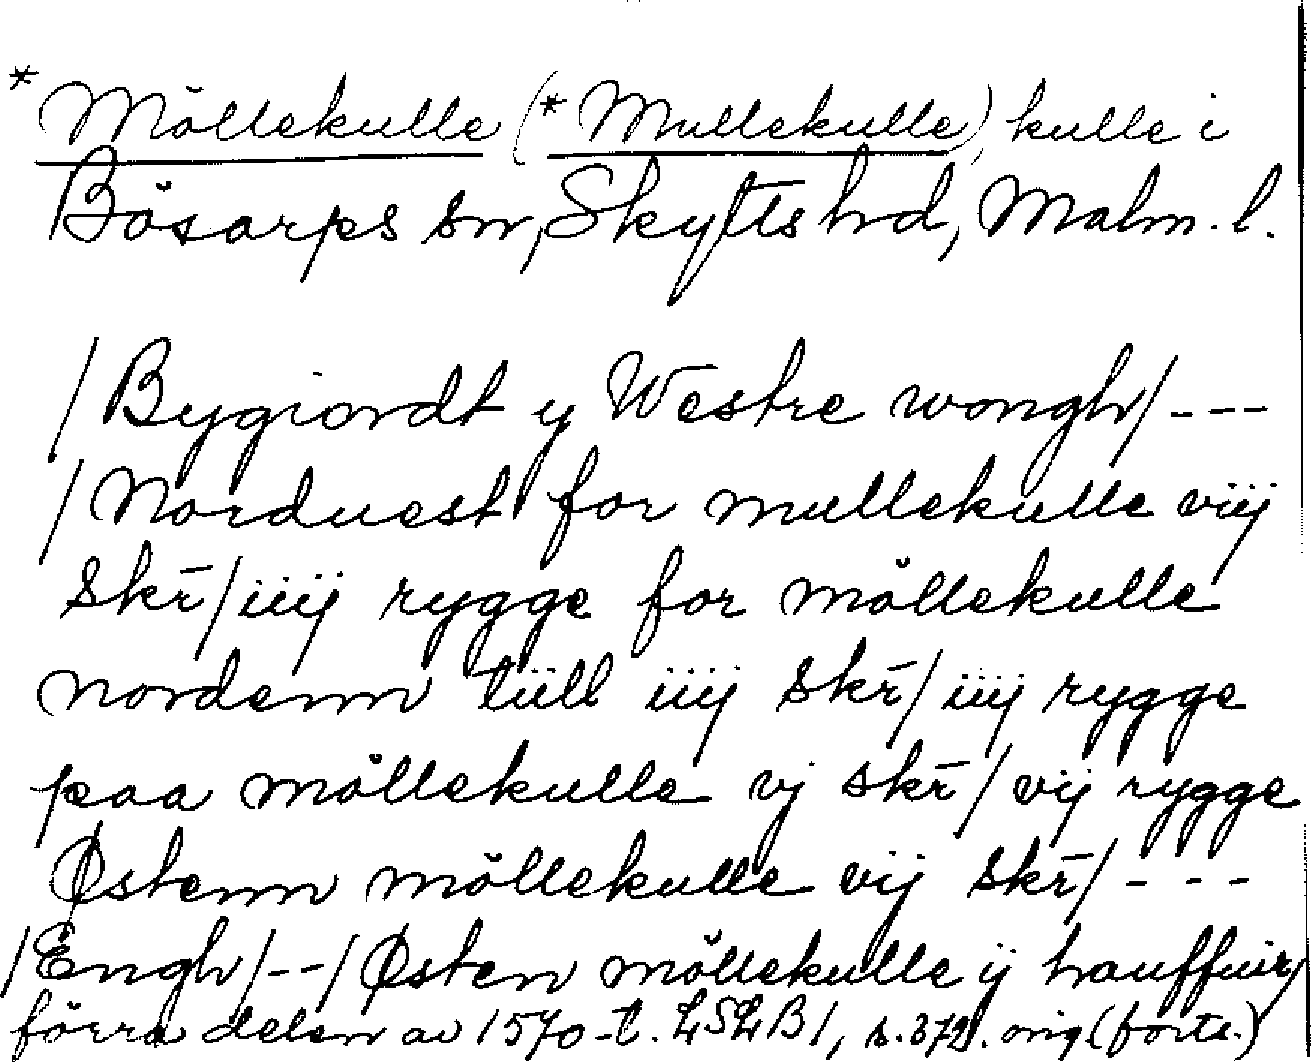 * Möllekulle (* Mullekulle), kulle i
Bösarps sn, Skytts hd, Malm. l.
/Bygiordt y Westre wongh/---
/Norduest for mullekulle viij
skr̄/iiij rygge for möllekulle
nordenn tiill iiij skr̄/iiij rygge
paa möllekulle vj skr̄/vij rygge
Østenn möllekulle vij skr̄/---
/Engh/--/Østen möllekulle ij hauffuir/
förra delen av 1570-t. LSLB1, s.372. orig. (forts.)